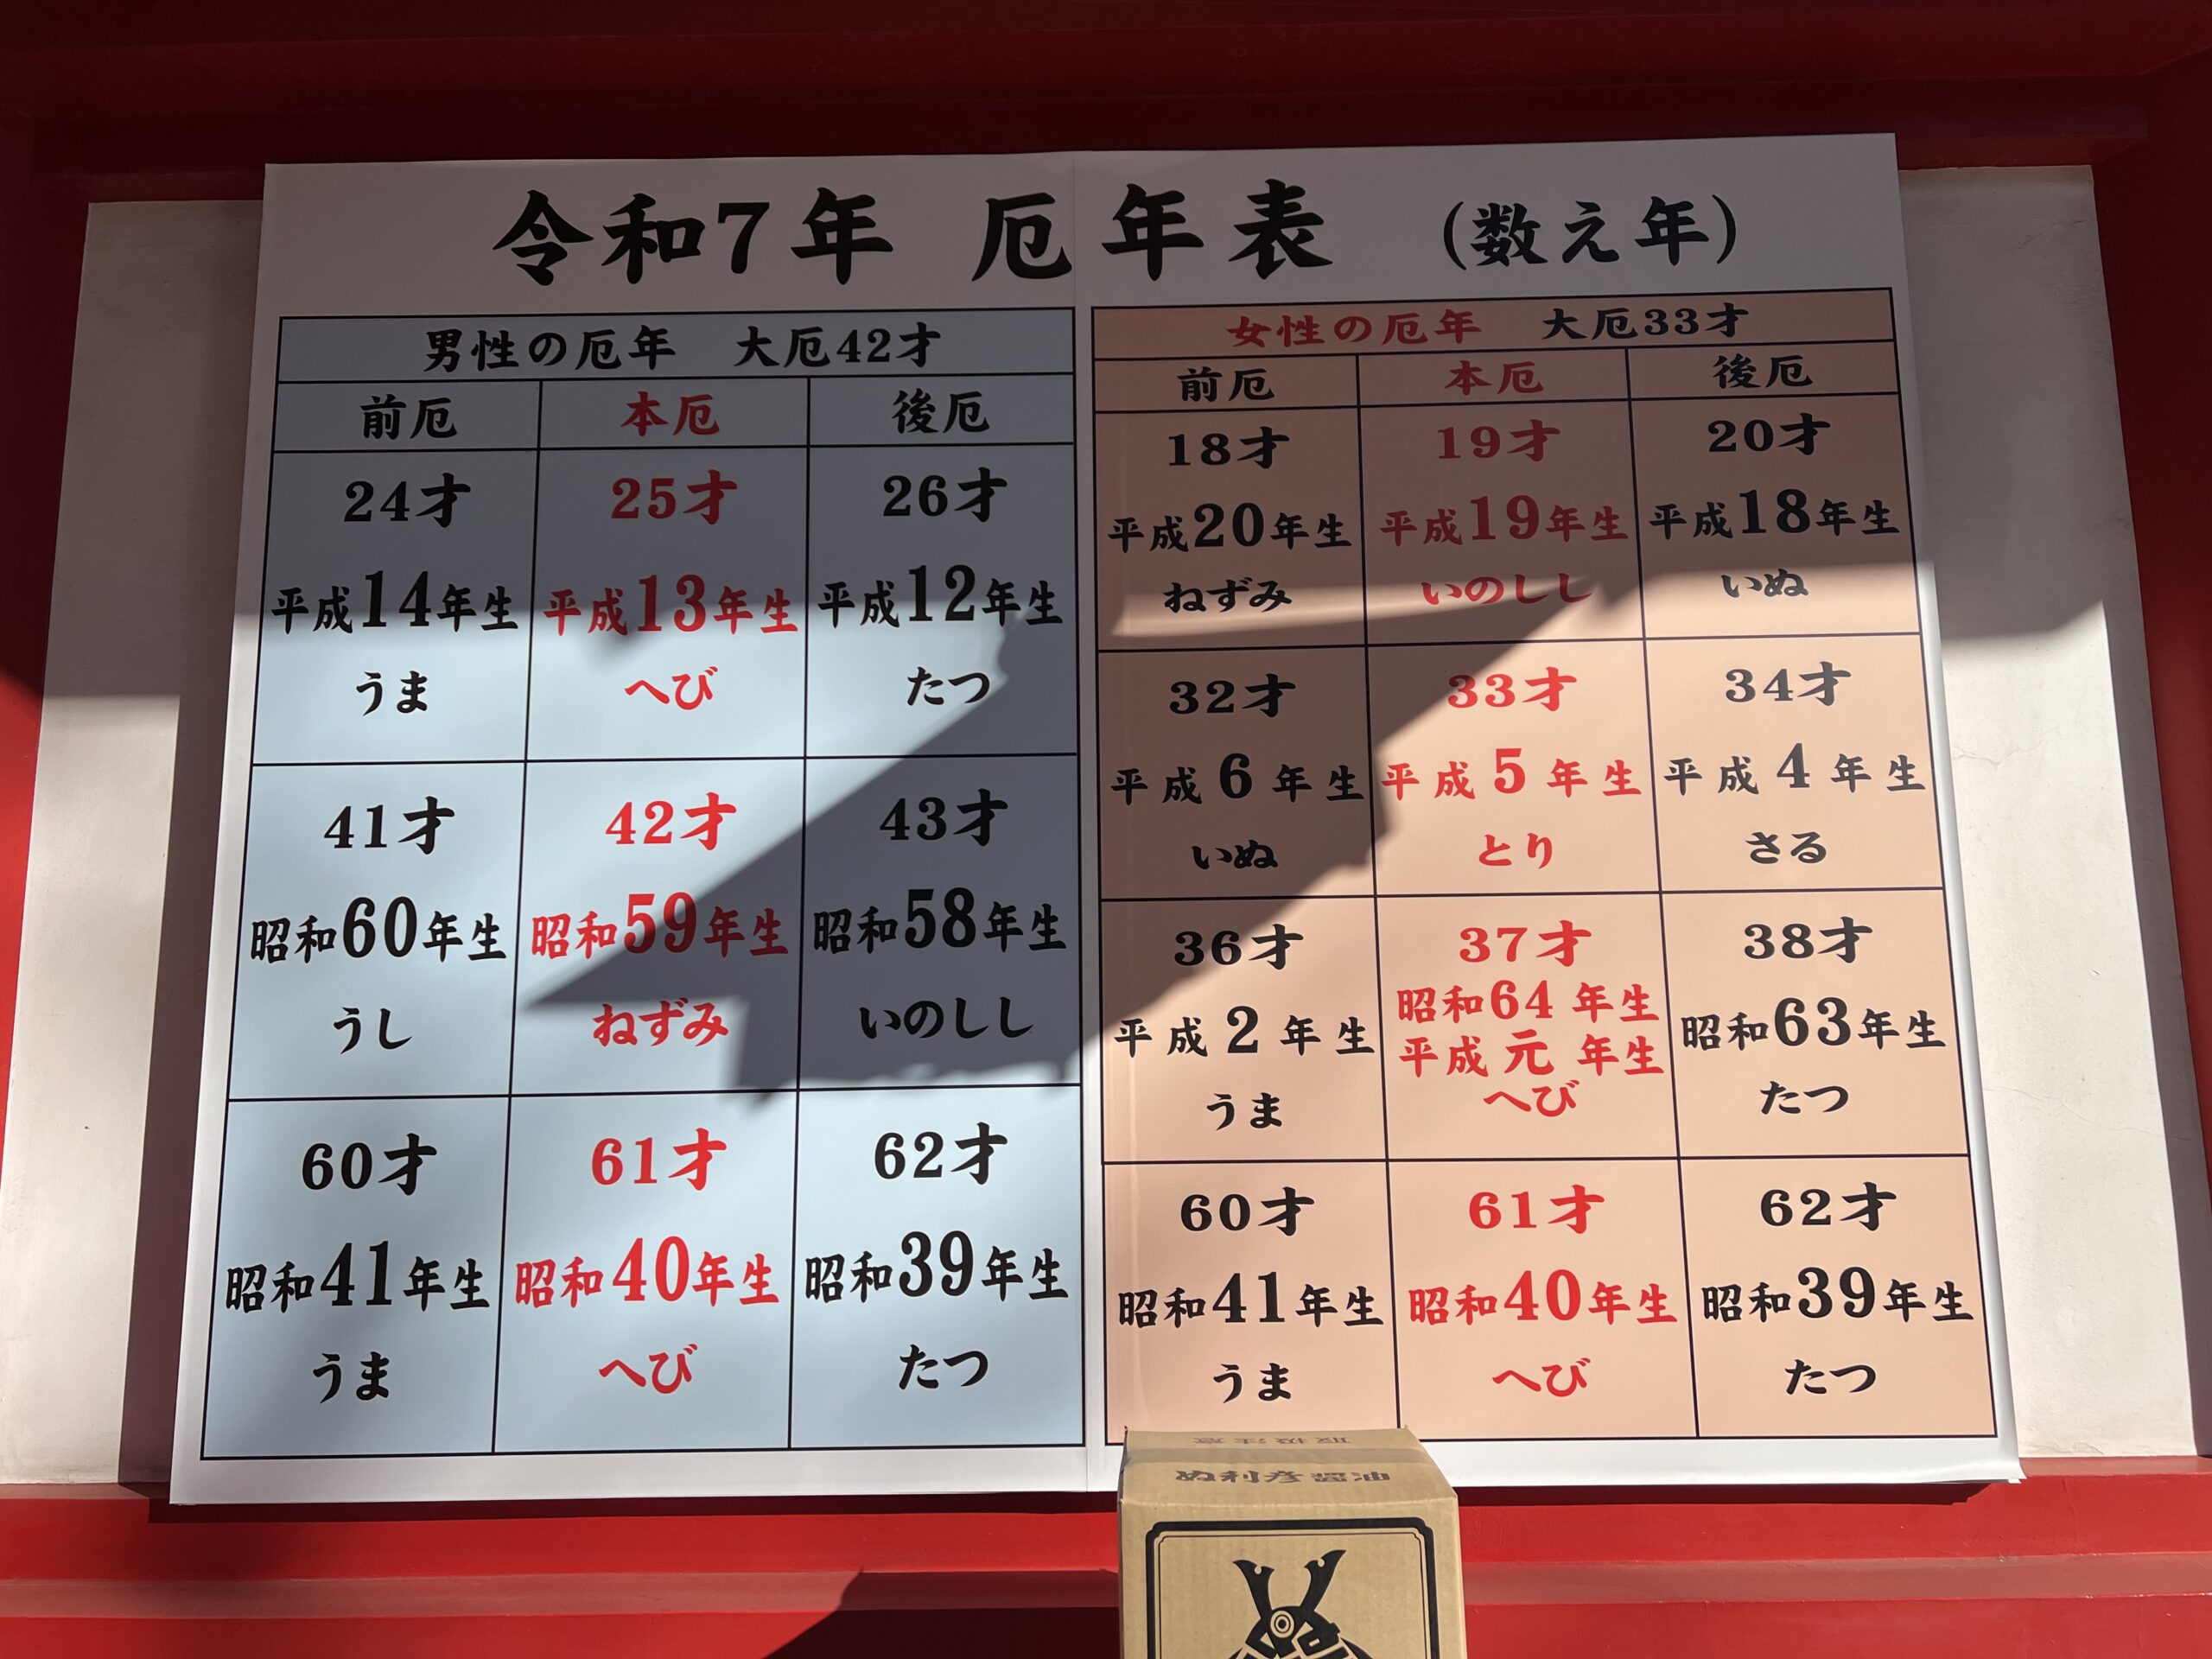 令和7年 厄年表 (数え年)
男性の厄年 大厄42才
前厄 本厄 後厄
24才 25才 26才
平成14年生 平成13年生 平成12年生
うま へび たつ
41才 42才 43才
昭和60年生 昭和59年生 昭和58年生
うし ねずみ いのしし
60才 61才 62才
昭和41年生 昭和40年生 昭和39年生
うま へび たつ
女性の厄年 大厄33才
前厄 本厄 後厄
18才 19才 20才
平成20年生 平成19年生 平成18年生
ねずみ いのしし いぬ
32才 33才 34才
平成6年生 平成5年生 平成4年生
いぬ とり さる
36才 37才 38才
平成2年生 昭和64年生 昭和63年生
平成元年生
うま へび たつ
60才 61才 62才
昭和41年生 昭和40年生 昭和39年生
うま へび たつ
取扱注意
ぬ利彦醤油